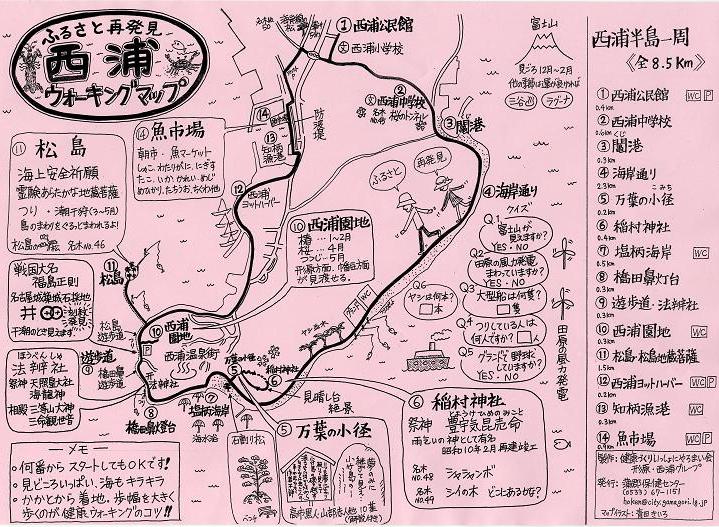 ふるさと再発見
西浦
ウォーキングマップ
⑭魚市場
朝市・魚マーケット
しゃこ、わたりがに、にぎす
たこ、いか、かれい、めじ
めひかり、たちうお、ちくわ他
⑪松島
海上安全祈願
霊験あらたかな地蔵菩薩
つり・潮干狩(3〜5月)
島のまわりをぐるっとまわれるよ!
名木No.46
戦国大名
福島正則
名古屋城築城石採地
刻紋発見
干潮のとき見えます
ほうべんしゃ
法弁社
祭神 天照皇大社
海龍神
相殿 三峯山大神
三命観世音
遊歩道
⑨
松島遊歩道
橋田鼻遊歩道
メモ
・何番からスタートしてもOKです!
・見どころいっぱい、海もキラキラ
・かかとから着地。歩幅を大きく
歩くのが健康ウォーキングのコツ!!
①西浦公民館
文 西浦小学校
②西浦中学校
桜のトンネル
③闇港
④海岸通り
クイズ
Q.1
富士山が見えますか?
YES・NO
Q2
田原の風力発電
まわっていますか?
YES・NO
Q3
大型船は何隻?
□隻
Q4
つりしている人は
何人ですか?□人
Q5
グランドで野球を
していますか?
YES・NO
Q6
ヤシは何本?
□本
田原の風力発電
富士山
見ごろ12月〜2月
三谷
ラグーナ
ふるさと
再発見
防潮堤
⑭
魚市場
⑬知柄漁港
⑫
西浦ヨットハーバー
⑩西浦園地
椿…1〜2月
桜…4月
つつじ…5月
形原方面、幡豆方面
が見渡せる。
⑪松島
⑩西浦園地
P
西浦温泉街
法弁社
⑧橋田鼻灯台
⑦塩柄海岸
海水浴
WC
万葉の小径
⑤
稲村神社
⑥
ヤシ並木
WC
見晴し台
絶景
石割り松
ベンチ
⑤万葉の小径
⑥稲村神社
とようけひめのみこと
祭神 豊宇気昆売命
雨乞いの神として有名
昭和10年2月再建竣工
名木No.48 シャシャンボ
名木No.49 シイの木 どこにあるかな?
西浦半島一周
《全8.5Km》
①西浦公民館 WC P
0.4km
②西浦中学校
0.6km
③闇港
くじ
0.3km
④海岸通り
2.3km
⑤万葉の小径
こみち
0.2km
⑥稲村神社
0.4km
⑦塩柄海岸 WC
0.5km
⑧橋田鼻灯台
0.2km
⑨遊歩道・法弁社
0.3km
⑩西浦園地 WC P
0.3km
⑪松島・松島地蔵菩薩
1.5km
⑫西浦ヨットハーバー WC P
1.2km
⑬知柄漁港 WC
0.3km
⑭魚市場 WC P
製作:健康づくりいっしょにやろまい会
形原・西浦グループ
発行:蒲郡市保健センター
(0533)67-1151
hoken@city.gamagori.lg.jp
マップイラスト:青田きいろ